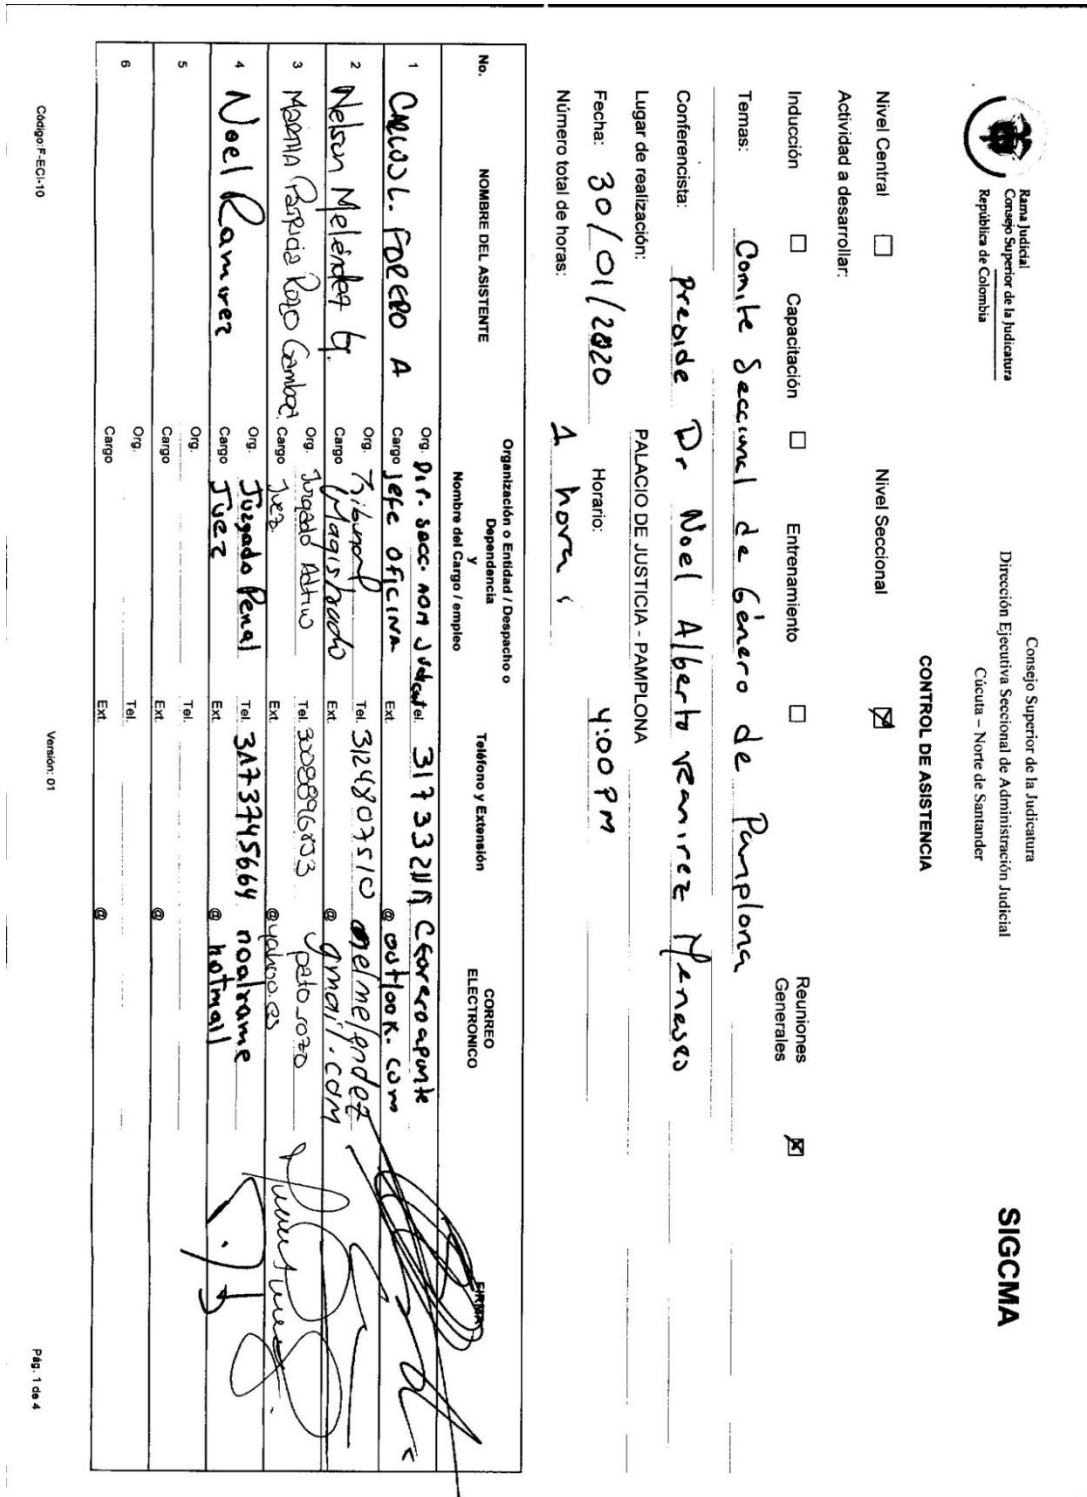 Rama Judicial
Consejo Superior de la Judicatura
República de Colombia
Consejo Superior de la Judicatura
Dirección Ejecutiva Seccional de Administración Judicial
Cúcuta – Norte de Santander
SIGCMA
CONTROL DE ASISTENCIA
Nivel Central
Nivel Seccional
Actividad a desarrollar:
Inducción
Capacitación
Entrenamiento
Reuniones Generales
Temas: Comite Seccional de Género de Pamplona
Conferencista: Preside Dr Noel Alberto Ramirez Meneses
Lugar de realización: PALACIO DE JUSTICIA - PAMPLONA
Fecha: 30/01/2020 Horario: 4:00 PM
Número total de horas: 1 hora
No. NOMBRE DEL ASISTENTE Organización o Entidad / Despacho o Dependencia y Nombre del Cargo / empleo Teléfono y Extensión CORREO ELECTRONICO FIRMA
1 CARLOS L. FORERO A Org. Dir. Secc. Adm Judicial Tel. Cforeroaponte
Cargo Jefe Oficina Ext. @ outlook.com
2 Nelson Meléndez Org. Tribunal Tel. 3124807510 nelmelendez
Cargo Magistrado Ext. @ gmail.com
3 MARIA PATRICIA ROZO Gamboa Org. Juzgado Adtivo Tel. pato_rozo
Cargo Juez Ext. @ yahoo.es
4 Noel Ramirez Org. Juzgado Penal Tel. 3173745664 noalrame
Cargo Juez Ext. @ hotmail
5 Org. Tel.
Cargo Ext. @
6 Org. Tel.
Cargo Ext. @
Código:F-ECI-10
Versión: 01
Pág. 1 de 4